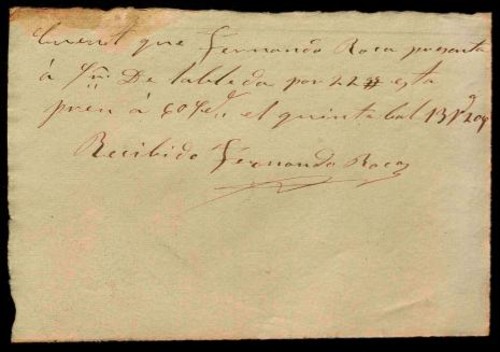 Cuent que Fernando Roca presenta
á De tablida por 22 esta
pren á 60 el quintal
Recibido Fernando Roca